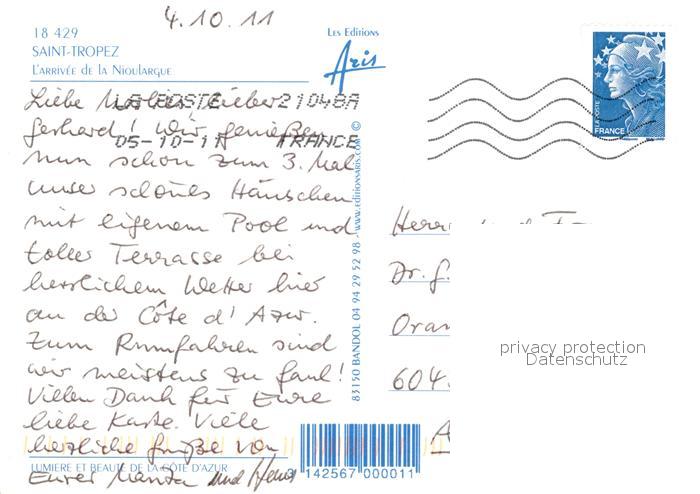 4.10.11
18 429
SAINT-TROPEZ
L'ARRIVÉE DE LA NIOULARGUE
Les Editions
Aris
LA POSTE 21048A
05-10-11 FRANCE
LA POSTE
FRANCE
Liebe lieber
Gerhard! Wir genießen
nun schon zum 3. Mal
unser schönes Häuschen
mit eigenem Pool und
toller Terrasse bei
herrlichem Wetter hier
an der Côte d'Azur.
Zum Rumfahren sind
wir meistens zu faul!
Vielen Dank für Eure
liebe Karte. Viele
herzliche Grüße von
Eurer und
83150 BANDOL 04 94 29 52 98 - www.editionsaris.com ©
Herrn
Dr. G.
Oran
604
privacy protection
Datenschutz
LUMIERE ET BEAUTE DE LA CÔTE D'AZUR
3 142567 000011